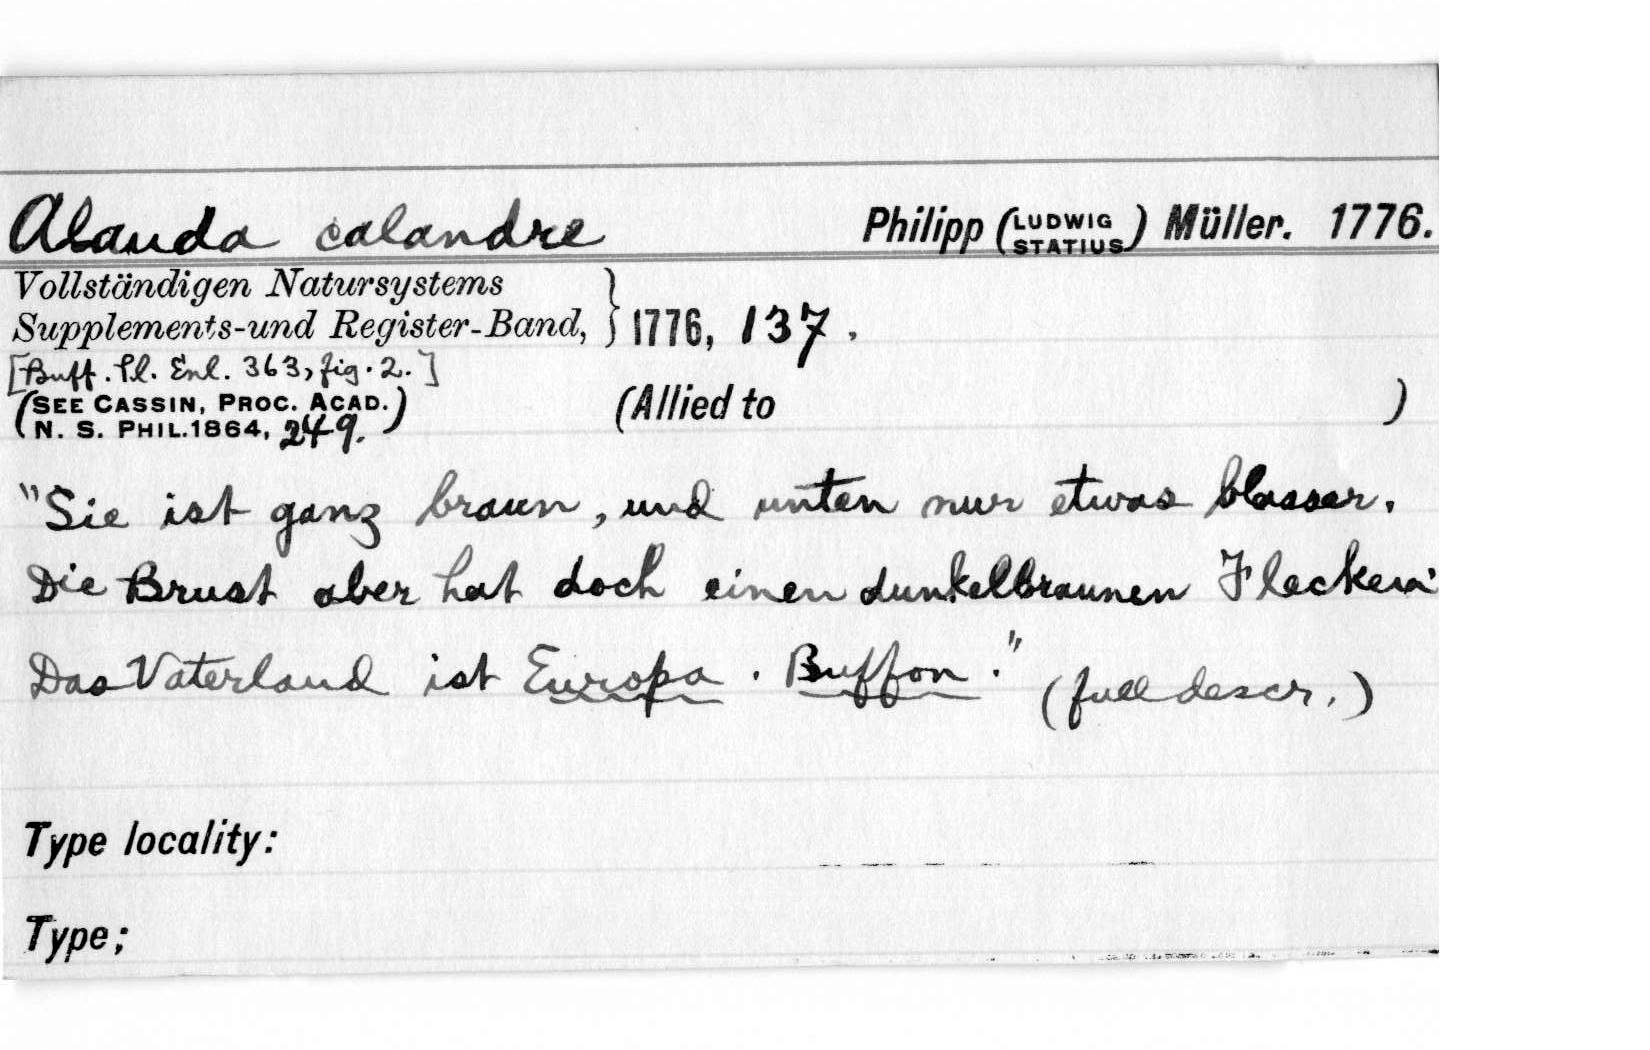 Alauda calandre Philipp (LUDWIG STATIUS) Müller. 1776.
Vollständigen Natursystems
Supplements-und Register-Band, } 1776, 137.
[Buff. Pl. Enl. 363, fig. 2.]
(SEE CASSIN, PROC. ACAD. (Allied to )
N. S. PHIL. 1864, 249.)
"Sie ist ganz braun, und unten nur etwas blasser.
Die Brust aber hat doch einen dunkelbraunen Flecken.
Das Vaterland ist Europa. Buffon." (full descr.)
Type locality:
Type;